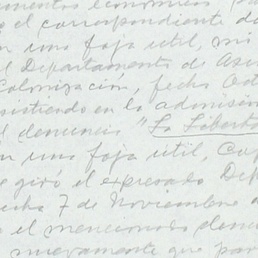 el correspondiente de
en una foja util, mi
el Departamento de As
Colonización, fecha Oct
sistiendo en la admisión
el denuncio "La Liberta
en una foja util, Cop
e giró el expresado Dep
echa 7 de Noviembre d
el mencionado denu
nuevamente que par